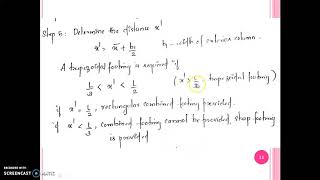 Step 5: Determine the distance x'
x' = x̄ + b₁/2 b₁ - width of exterior column.
A trapezoidal footing is required if
L/3 < x' < L/2 (x' > L/3 trapezoidal footing)
if x' = L/2, rectangular combined footing provided.
if x' < L/3, combined footing cannot be provided, strap footing
is provided
RECORDED WITH
SCREENCAST